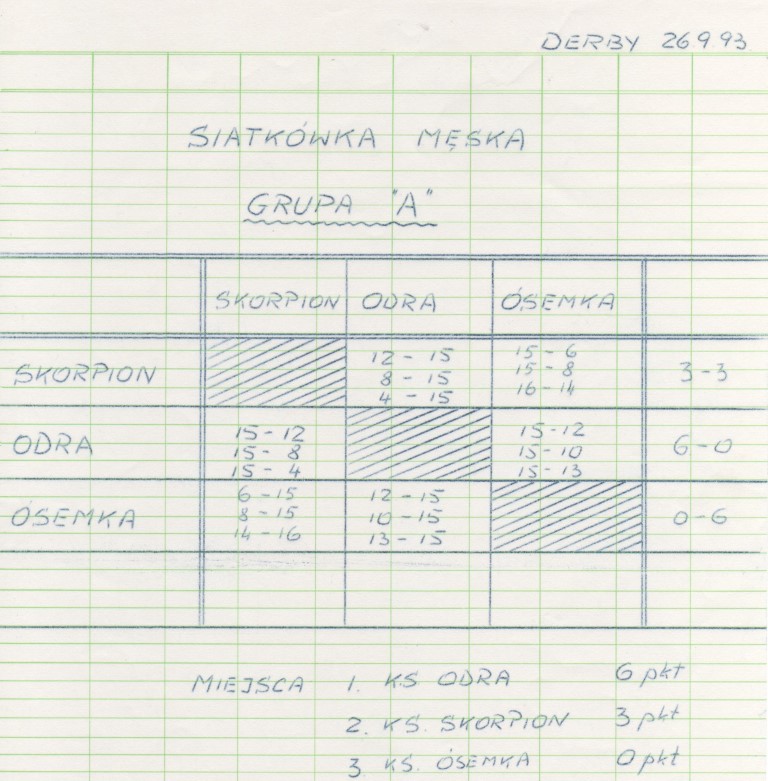 DERBY 26 9 93
SIATKÓWKA MĘSKA
GRUPA "A"
SKORPION ODRA ÓSEMKA
SKORPION 12 - 15 15 - 6 3 - 3
8 - 15 15 - 8
4 - 15 16 - 14
ODRA 15 - 12 15 - 12 6 - 0
15 - 8 15 - 10
15 - 4 15 - 13
ÓSEMKA 6 - 15 12 - 15 0 - 6
8 - 15 10 - 15
14 - 16 13 - 15
MIEJSCA 1. KS ODRA 6 pkt
2. KS. SKORPION 3 pkt
3 KS. ÓSEMKA 0 pkt